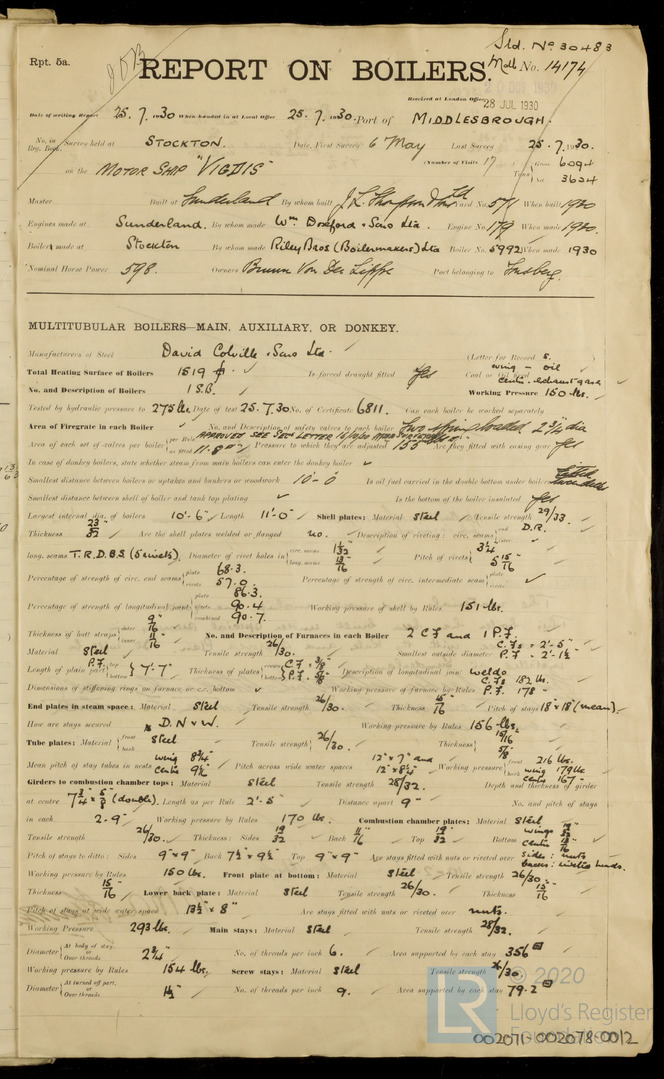 Std. No 30483
Rpt. 5a.
REPORT ON BOILERS.
Midl No. 14174
Received at London Office 28 JUL 1930
Date of writing Report 25.7.1930 When handed in at Local Office 25.7.1930. Port of MIDDLESBROUGH.
No. in Reg. Book. Survey held at STOCKTON. Date, First Survey 6 May Last Survey 25.7.1930.
on the MOTOR SHIP "VIGDIS" (Number of Visits 17) Tons Gross 6094
Net 3624
Master Built at Sunderland By whom built Yard No. 571 When built 1930
Engines made at Sunderland. By whom made Wm Doxford & Sons Ltd. Engine No. 179 When made 1930.
Boilers made at Stockton By whom made Riley Bros (Boilermakers) Ltd Boiler No. 5992 When made 1930
Nominal Horse Power 598. Owners Bruun Von Der Lippe Port belonging to
MULTITUBULAR BOILERS—MAIN, AUXILIARY, OR DONKEY.
Manufacturers of Steel David Colville & Sons Ltd. (Letter for Record S.)
Total Heating Surface of Boilers 1519 Is forced draught fitted yes Coal or Oil fired wing - oil centre - exhaust gas
No. and Description of Boilers 1 S.B. Working Pressure 150 lbs.
Tested by hydraulic pressure to 275 lbs Date of test 25.7.30 No. of Certificate 6811. Can each boiler be worked separately
Area of Firegrate in each Boiler No. and Description of safety valves to each boiler Two spring loaded 2 3/4" dia
APPROVED SEE SECY LETTER
Area of each set of valves per boiler per Rule as fitted 11.8 Pressure to which they are adjusted 155 Are they fitted with easing gear yes
In case of donkey boilers, state whether steam from main boilers can enter the donkey boiler
Smallest distance between boilers or uptakes and bunkers or woodwork 10'-0" Is oil fuel carried in the double bottom under boilers
Smallest distance between shell of boiler and tank top plating Is the bottom of the boiler insulated yes
Largest internal dia. of boilers 10'-6" Length 11'-0" Shell plates: Material steel Tensile strength 29/33.
Thickness 23/32 Are the shell plates welded or flanged no. Description of riveting: circ. seams end D.R.
long. seams T.R.D.B.S. (5 rivets). Diameter of rivet holes in circ. seams 1 1/32 long. seams 13/16 Pitch of rivets 3 1/4 5 15/16
Percentage of strength of circ. end seams plate 68.3. rivets 57.0. Percentage of strength of circ. intermediate seam
Percentage of strength of longitudinal joint plate 86.3. rivets 90.4 combined 90.7. Working pressure of shell by Rules 151 lbs.
Thickness of butt straps outer 9/16 inner 11/16 No. and Description of Furnaces in each Boiler 2 C.F. and 1 P.F.
Material steel Tensile strength 26/30. Smallest outside diameter C.Fs = 2'-5" P.F. = 2'-1 1/2
Length of plain part P.F. top bottom 7'-7" Thickness of plates crown C.F. = 3/8 bottom P.F. Description of longitudinal joint weld
Dimensions of stiffening rings on furnace or c.c. bottom Working pressure of furnace by Rules C.Fs 182 lbs. P.F. 178
End plates in steam space: Material steel Tensile strength 26/30. Thickness 15/16 Pitch of stays 18" x 18" (mean).
How are stays secured D.N & W. Working pressure by Rules 156 lbs.
Tube plates: Material front back steel Tensile strength 26/30. Thickness 15/16 5/8
Mean pitch of stay tubes in nests wing 8 3/4" centre 9 1/2 Pitch across wide water spaces 12" x 7" and 12" x 8 1/4" Working pressure front 216 lbs. back wing 179 lbs centre 167
Girders to combustion chamber tops: Material steel Tensile strength 28/32. Depth and thickness of girder
at centre 7 3/4 x 5/8 (double). Length as per Rule 2'-5" Distance apart 9" No. and pitch of stays
in each 2-9" Working pressure by Rules 170 lbs Combustion chamber plates: Material steel
Tensile strength 26/30. Thickness: Sides 19/32 Back 11/16 Top 19/32 Bottom wings 19/32 centre 13/16
Pitch of stays to ditto: Sides 9" x 9" Back 7 1/2" x 9 1/2 Top 9" x 9" Are stays fitted with nuts or riveted over sides: nuts
Working pressure by Rules 150 lbs. Front plate at bottom: Material steel Tensile strength 26/30.
Thickness 15/16 Lower back plate: Material steel Tensile strength 26/30. Thickness 13/16
Pitch of stays at wide water space 13 1/2" x 8" Are stays fitted with nuts or riveted over nuts.
Working Pressure 293 lbs. Main stays: Material steel Tensile strength 28/32.
Diameter At body of stay, or Over threads 2 3/4" No. of threads per inch 6. Area supported by each stay 356
Working pressure by Rules 154 lbs. Screw stays: Material steel Tensile strength 26/30
Diameter At turned off part, or Over threads 1 1/2" No. of threads per inch 9. Area supported by each stay 79.2
© 2020
LR Lloyd's Register
Foundation
002071-002078-0012